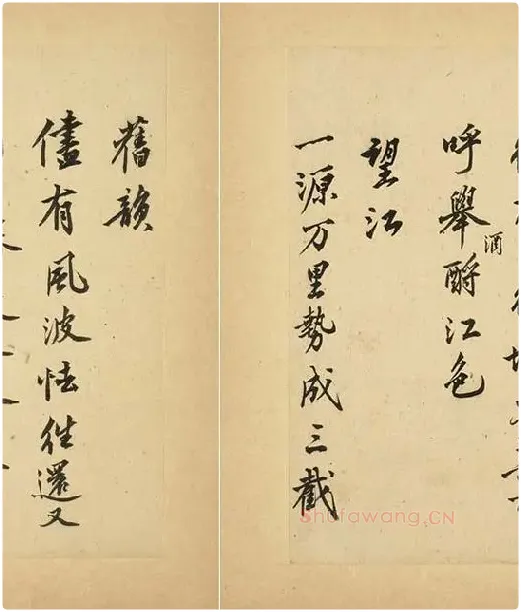 呼舉酒酹江色
望江
一源万里勢成三截
舊韻
儘有風波怯往還又
Shufawang.CN